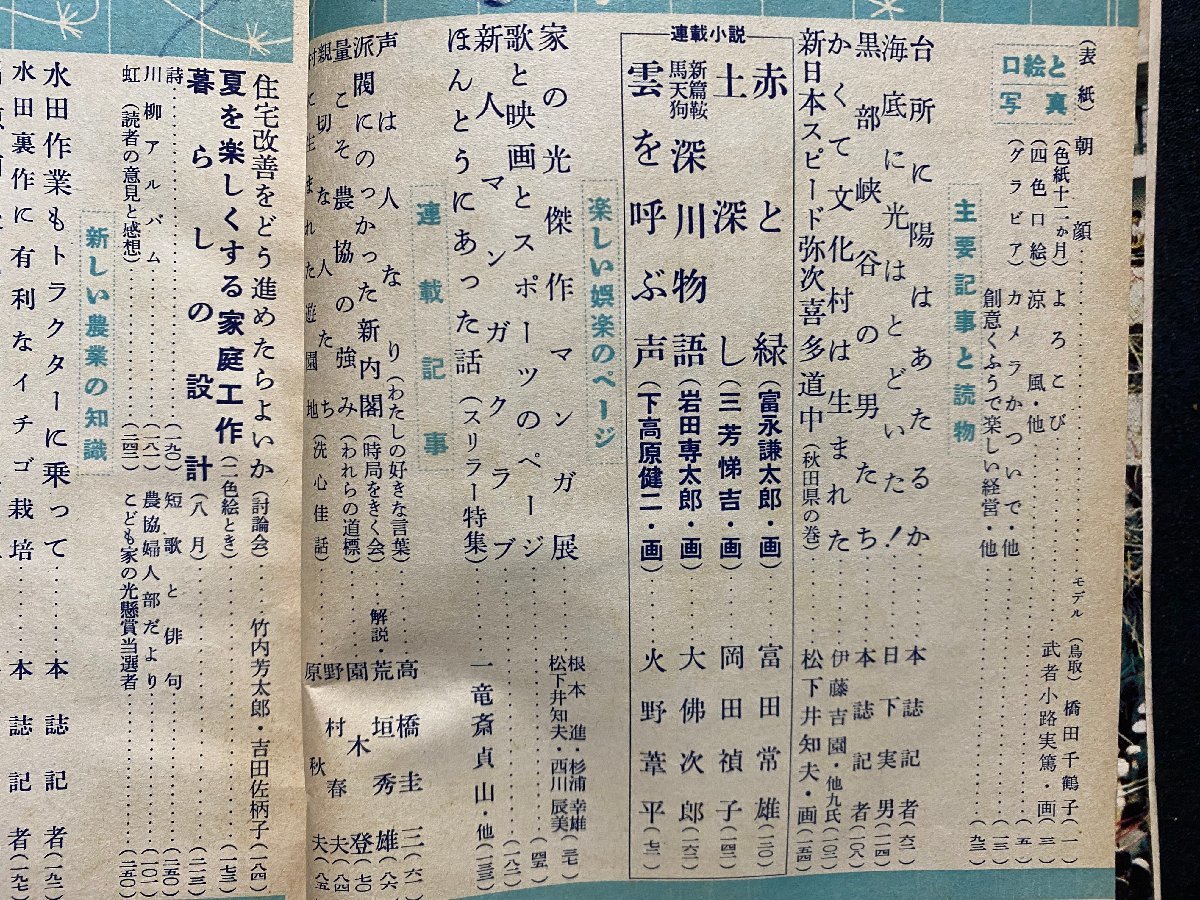 口絵と写真
(表紙)朝顔……モデル(鳥取)橋田千鶴子(一)
(色紙十二ヵ月)よろこび……武者小路実篤・画(三)
(四色口絵)涼風・他……(五)
(グラビア)カメラかついで・他……(一三)
創意くふうで楽しい経営・他……(九三)
主要記事と読物
台所に陽はあたるか……本誌記者(六)
海底に光はとどいた!……日下実男(一四)
黒部峡谷の男たち……本誌記者(一〇八)
かくて文化村は生まれた……伊藤吉園・他九氏(一〇二)
新日本スピード弥次喜多道中(秋田県の巻)……松下井知夫・画(五四)
連載小説
赤と緑(富永謙太郎・画)……富田常雄(一二〇)
土深し(三芳悌吉・画)……岡田禎子(一四二)
新篇鞍馬天狗 深川物語(岩田専太郎・画)……大佛次郎(六二)
雲を呼ぶ声(下高原健二・画)……火野葦平(七二)
楽しい娯楽のページ
家の光傑作マンガ展……根本進・杉浦幸雄 松下井知夫・西川辰美(三七)
歌と映画とスポーツのページ……(四五)
新人マンガクラブ……(一八二)
ほんとうにあった話(スリラー特集)……一竜斎貞山・他(一三三)
連載記事
声は人なり(わたしの好きな言葉)……高橋圭三(六一)
派閥にのっかった新内閣(時局をきく会)解説・荒垣秀雄(八六)
量こそ農協の強み(われらの道標)……園木登(七〇)
親切な人たち(洗心佳話)……野村春夫(八四)
村に生まれた遊園地……原秋夫(八五)
住宅改善をどう進めたらよいか(討論会)……竹内芳太郎・吉田佐柄子(一八四)
夏を楽しくする家庭工作(二色絵とき)……(一七三)
暮らしの設計(八月)……(二一三)
詩……(一九〇)
短歌と俳句……(二五〇)
川柳アルバム……(一八一)
農協婦人部だより……(一〇一)
虹(読者の意見と感想)……(二四二)
こども家の光懸賞当選者……(二五〇)
新しい農業の知識
水田作業もトラクターに乗って……本誌記者(一九二)
水田裏作に有利なイチゴ栽培……本誌記者(一九七)